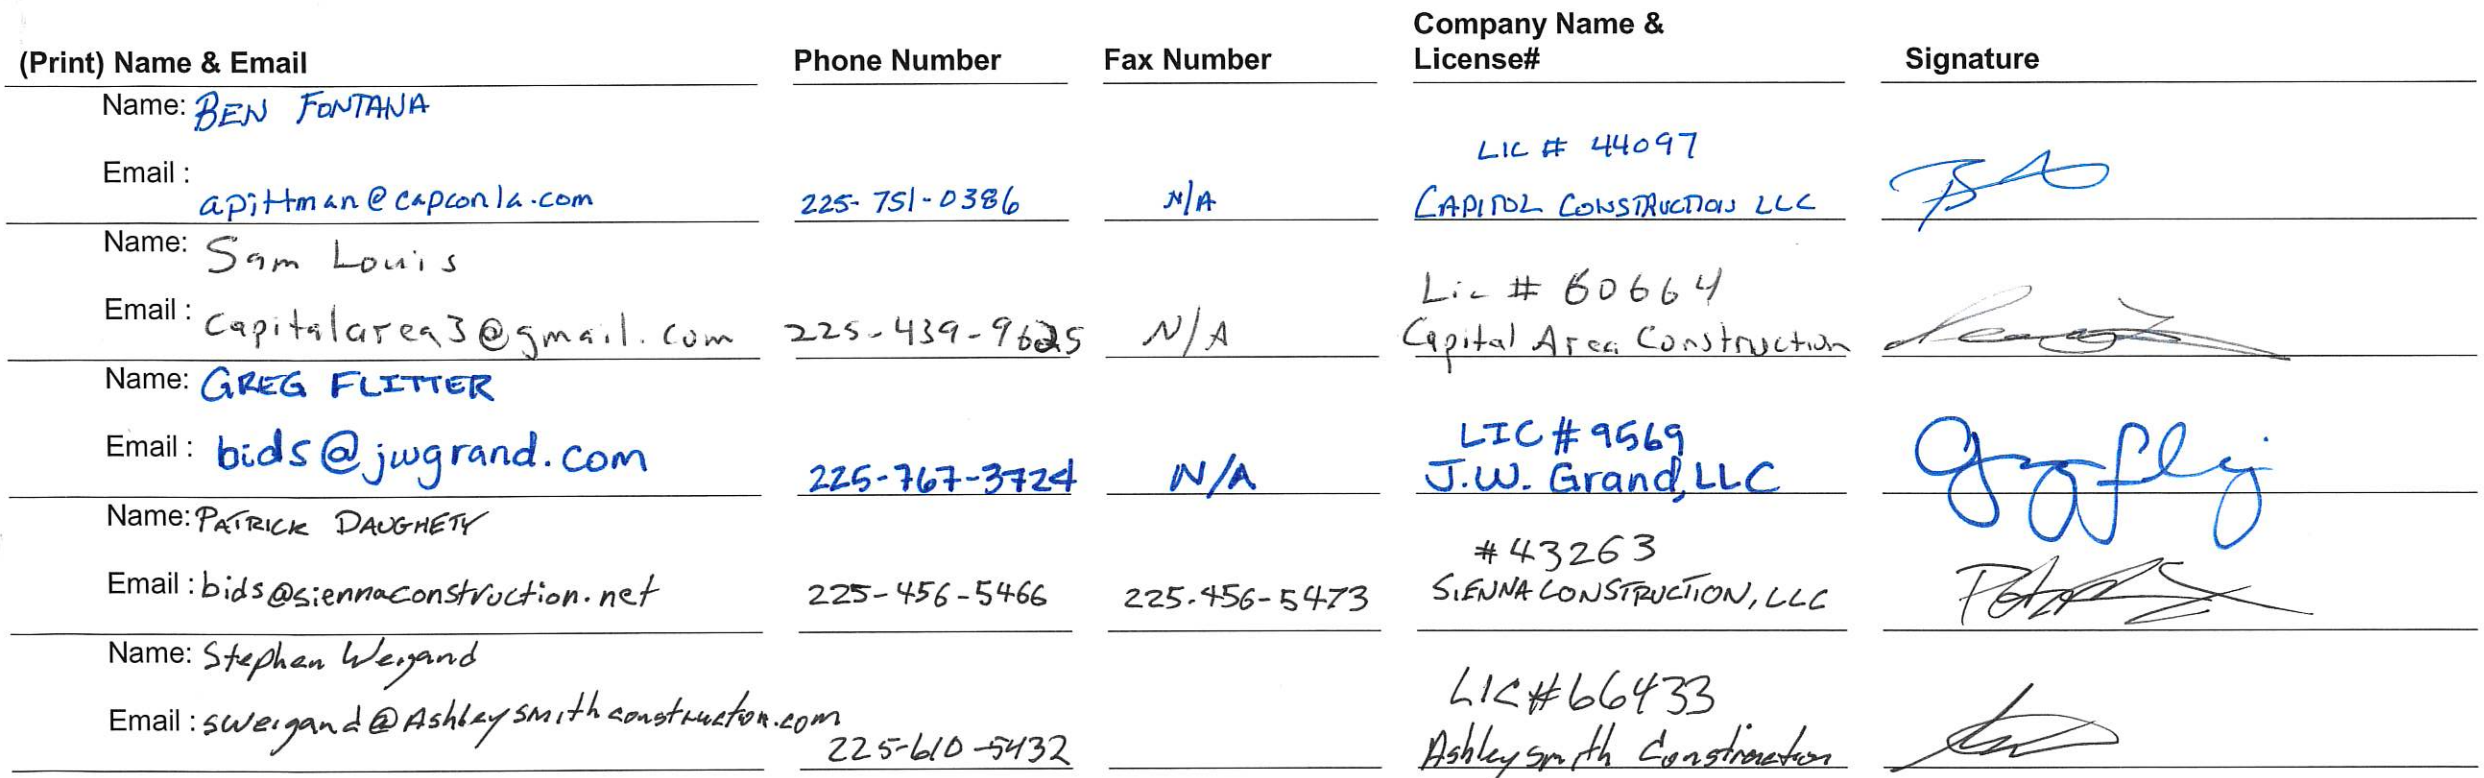 (Print) Name & Email Phone Number Fax Number Company Name & License# Signature
Name: BEN FONTANA
LIC # 44097
Email :
apittman@capconla.com 225-751-0386 N/A CAPITOL CONSTRUCTION LLC
Name: Sam Louis
Lic # 60664
Email : Capitalarea3@gmail.com 225-439-9625 N/A Capital Area Construction
Name: GREG FLITTER
LIC # 9569
Email : bids@jwgrand.com 225-767-3724 N/A J.W. Grand, LLC
Name: PATRICK DAUGHETY
#43263
Email : bids@siennaconstruction.net 225-456-5466 225.456-5473 SIENNA CONSTRUCTION, LLC
Name: Stephen Weigand
LIC#66433
Email : sweigand@Ashleysmithconstruction.com
225-610-5432 Ashley smith Construction